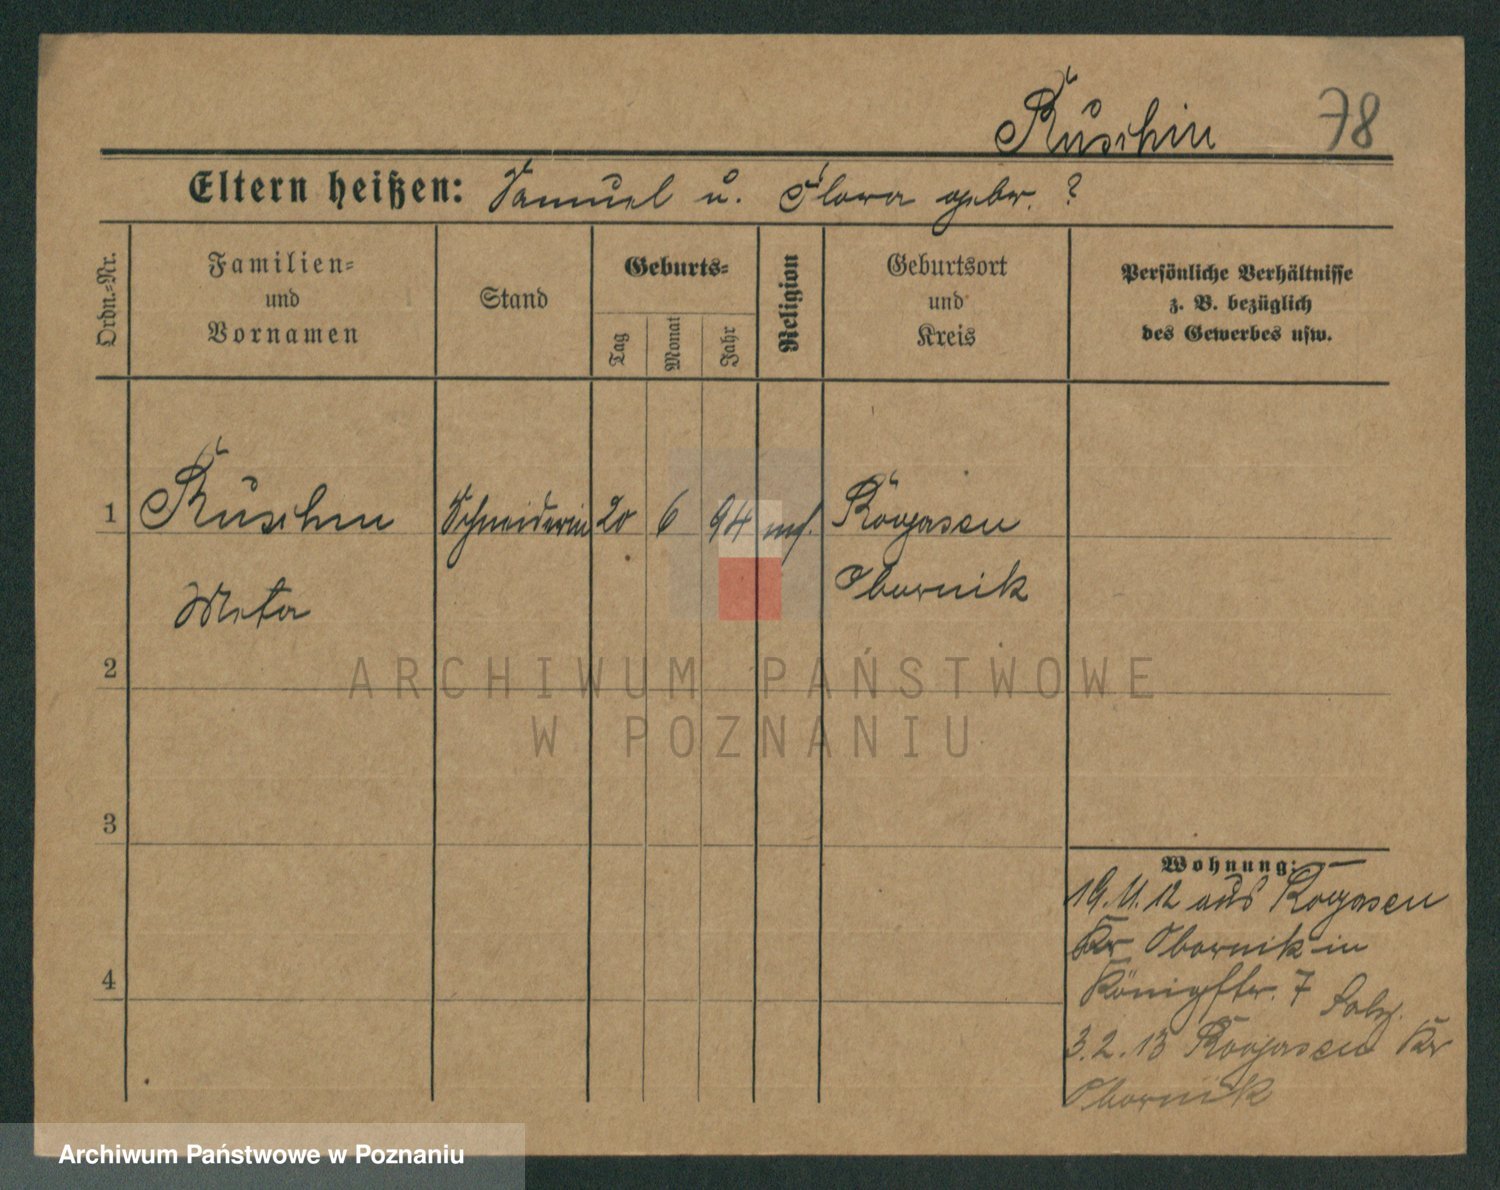 Ruschin 78
Eltern heißen: Samuel u. Flora gebr. ?
Ordn.-Nr.
Familien-
und
Vornamen
Stand
Geburts-
Tag
Monat
Jahr
Religion
Geburtsort
und
Kreis
Persönliche Verhältnisse
z. B. bezüglich
des Gewerbes usw.
1 Ruschin Schneiderin 20 6 94 mos. Rogasen
Meta Obornik
2
ARCHIWUM PAŃSTWOWE
W POZNANIU
3
4
Wohnung:
19.11.12 aus Rogasen
Kr Obornik in
Königstr. 7
3.2.13 Rogasen Kr
Obornik
Archiwum Państwowe w Poznaniu